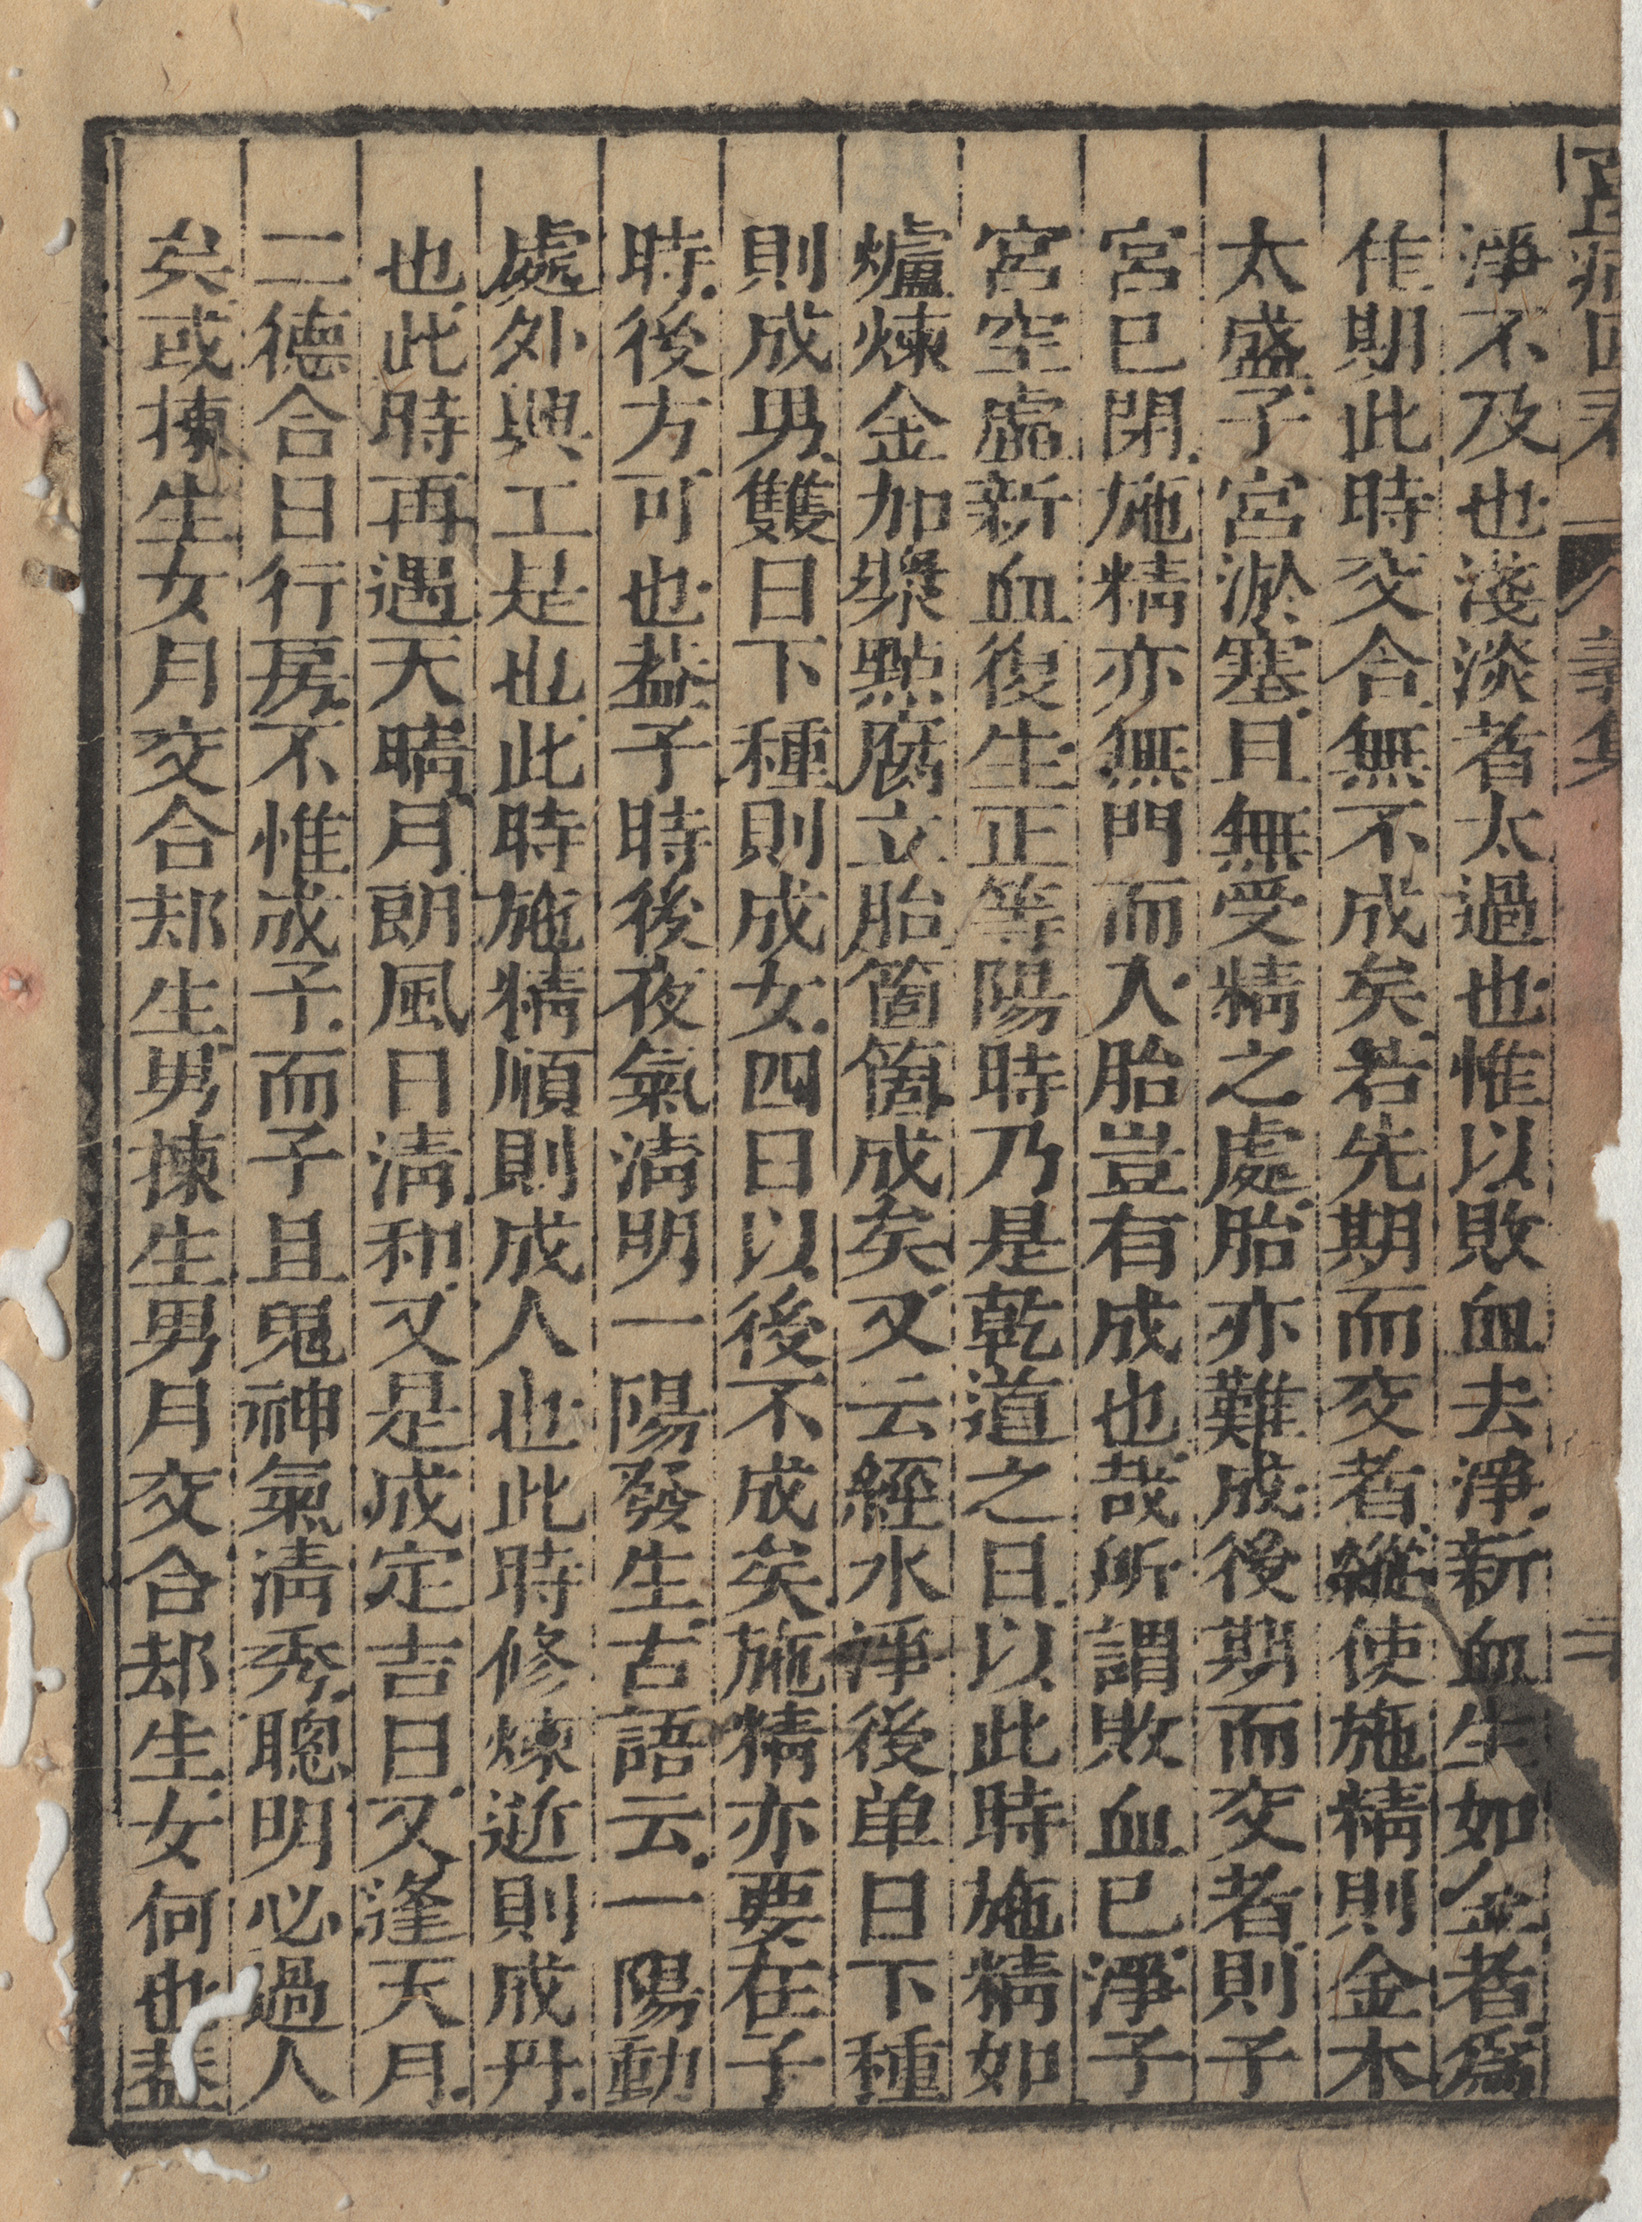 淨不及也淺淡者太過也惟以敗血去淨新血生如金者為
佳期此時交合無不成矣若先期而交者縱使施精則金木
太盛子宮淤塞且無受精之處胎亦難成後期而交者則子
宮已閉施精亦無門而入胎豈有成也哉所謂敗血已淨子
宮空處新血復生正等陽時乃是乾道之日以此時施精如
爐煉金加漿點腐立胎箇箇成矣又云經水淨後单日下種
則成男雙日下種則成女四日以後不成矣施精亦要在子
時後方可也葢子時後夜氣淸明一陽發生古語云一陽動
處外興工是也此時施精順則成人也此時修煉逆則成丹
也此時再遇天晴月朗風日淸和又是成定吉日又逢天月
二德合日行房不惟成子而子且鬼神氣淸秀聰明必過人
矣或揀生女月交合却生男揀生男月交合却生女何也葢